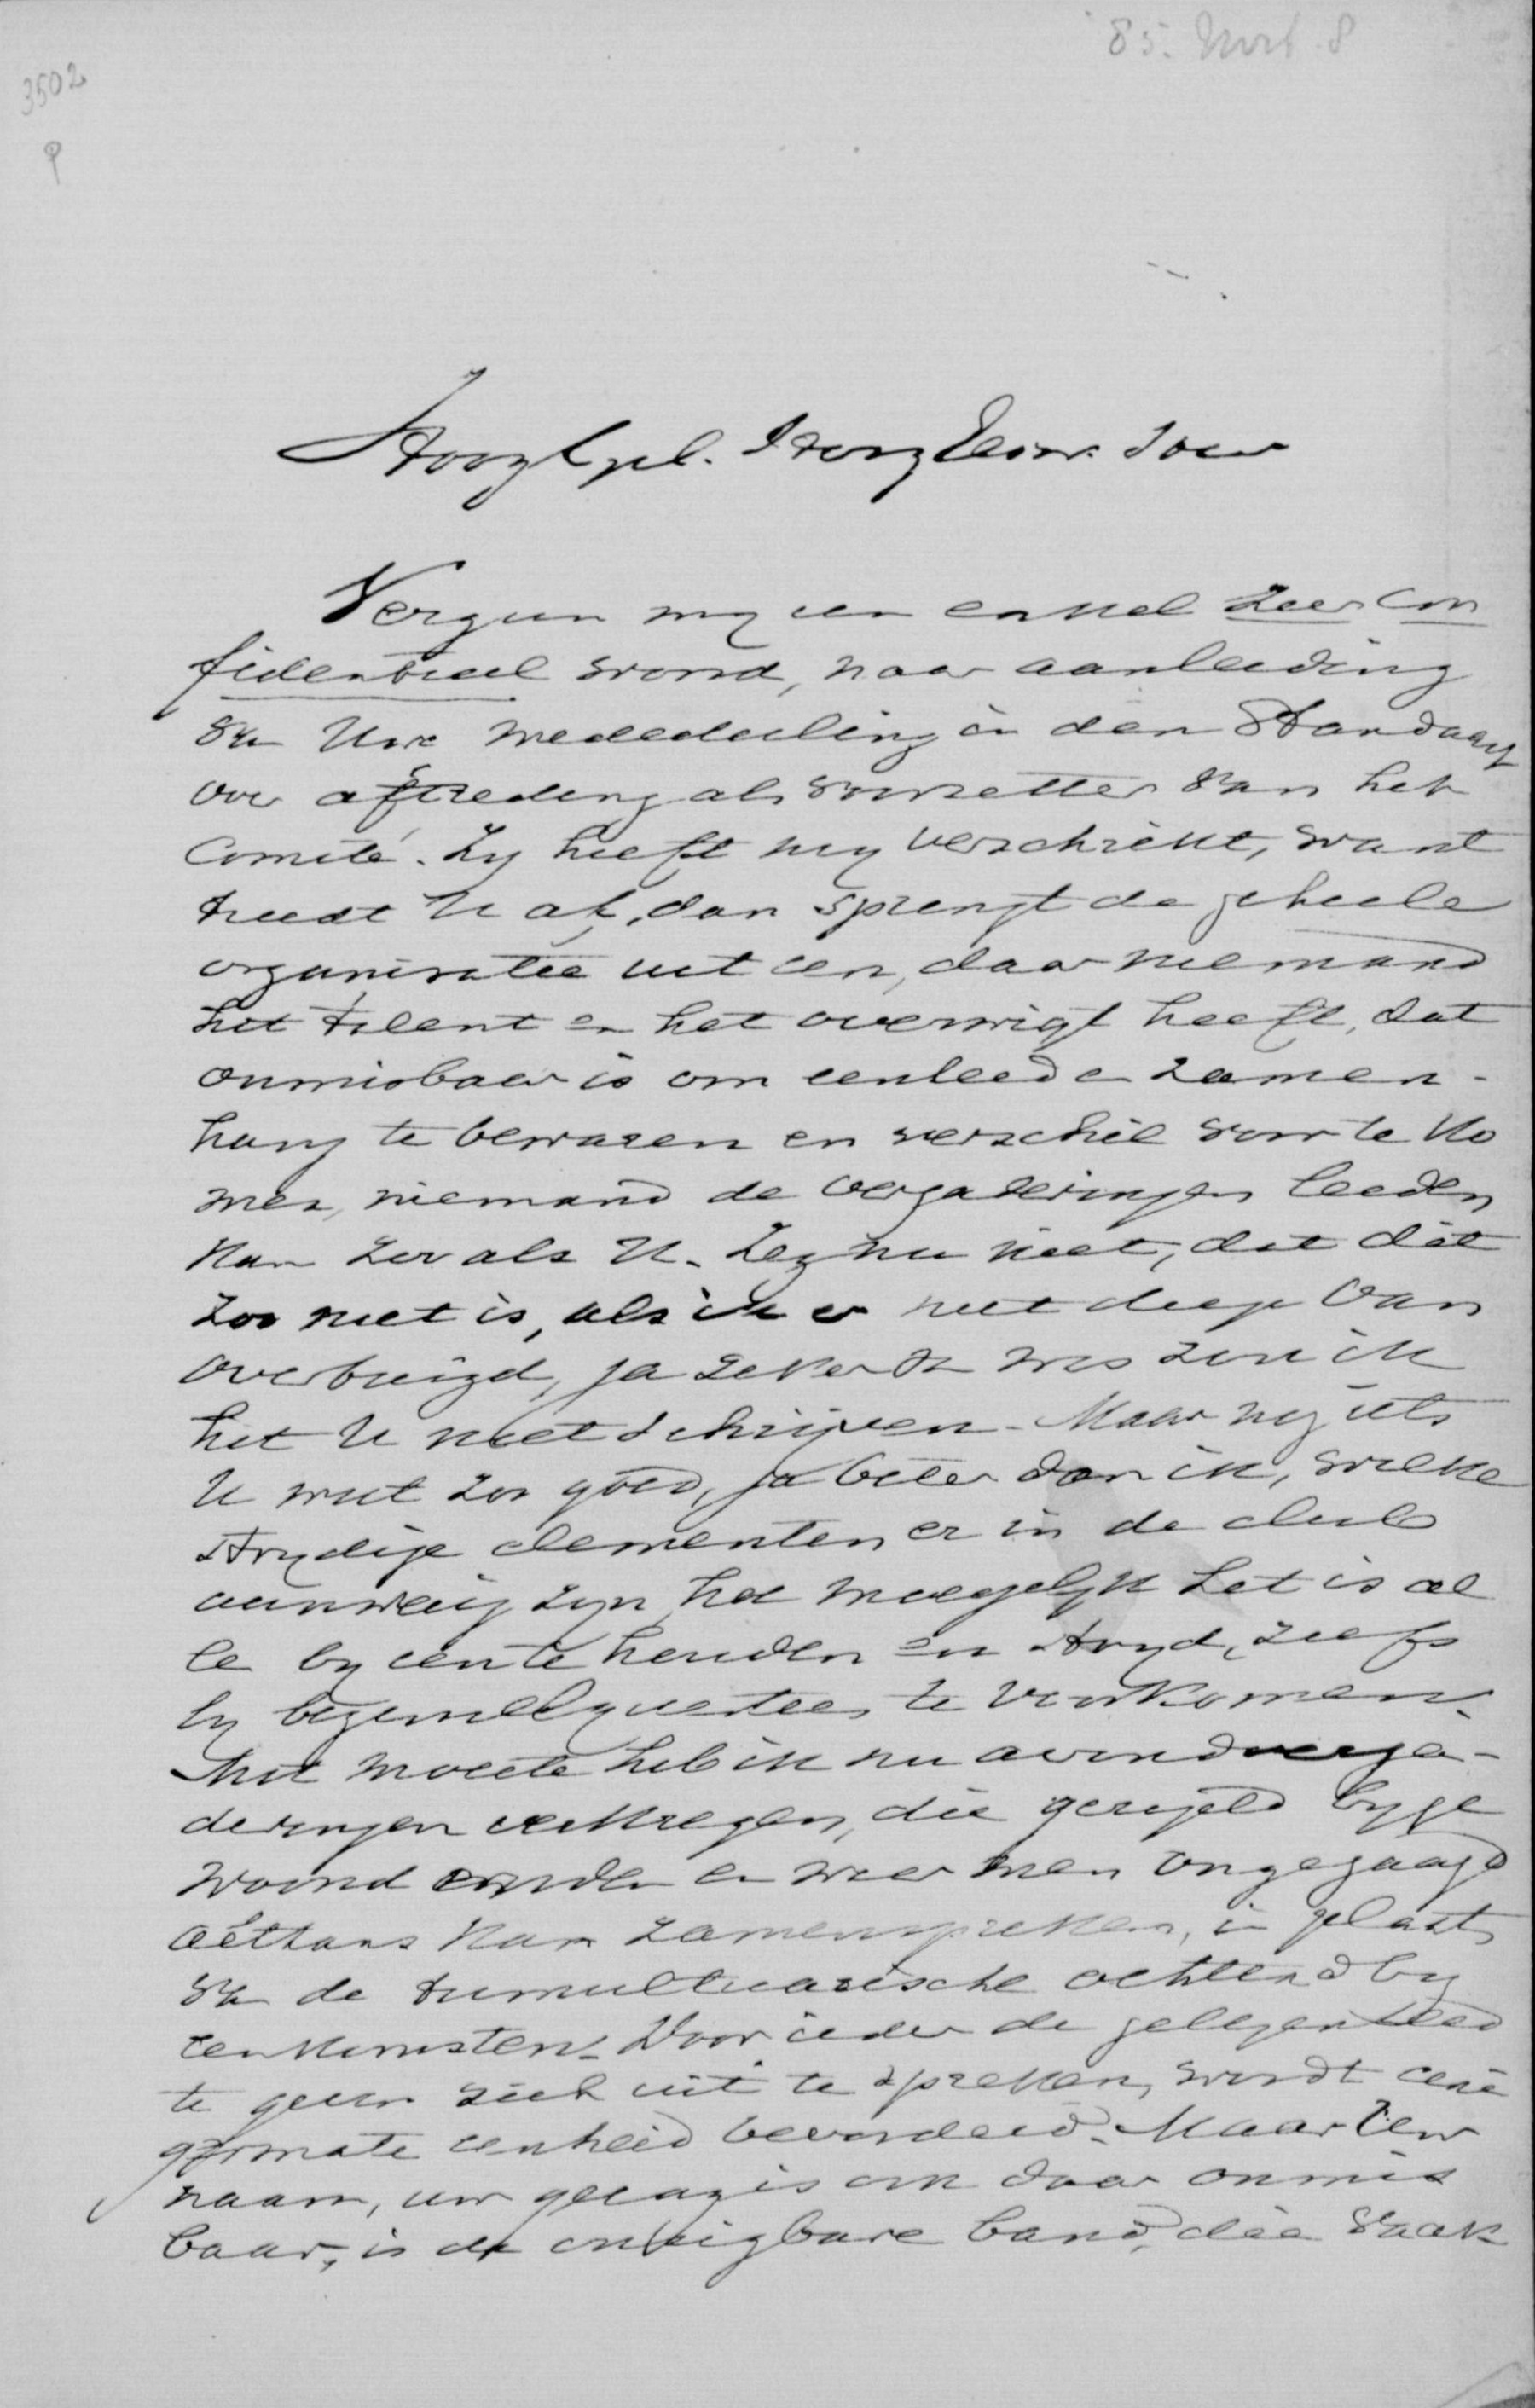 85.
3502
Hooggel. Hoog Eerw. Heer
Vergun my een enkel zeer con
fidentieel woord, naar aanleiding
van Uwe mededeeling in den Standaard
over aftreding als voorzitter van het
Comité. Zy heeft my verschrikt, want
treedt U af, dan sprengt de geheele
organisatie uit een, daar niemand
het talent en het overwigt heeft, dat
onmisbaar is om eenheid en zamen-
hang te bewaren en verschil voor te ko
men, niemand de vergaderingen leiden
kan zoo als U. Zeg nu niet, dat dit
zoo niet is, als ik er niet diep van
overtuigd, ja zeker van was zou ik
het U niet schrijven. Maar nog iets
U weet zoo goed, ja beter dan ik, welke
strydige elementen er in de club
aanwezig zyn, hoe moegelyk het is al
le by een te houden en stryd, zelfs
by beginselquesties te voorkomen.
Met moeite heb ik nu avondverga-
deringen verkregen, die geregeld byge
woond worden en waar men ongejaagd
althans kan zamenspreken, in plaats
van de tumultuarische ochtend by
eenkomsten. Door ieder de gelegenheid
te geven zich uit te spreken, wordt eeni
germate eenheid bevorderd. Maar Uw
naam, uw gezag is ook daar onmis
baar, is de onzigbare band, die vaak